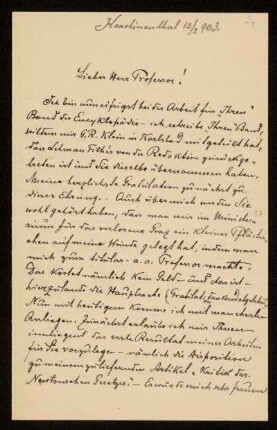 Karolinenthal 12/2 903.
Lieber Herr Professor!
Ich bin nun eifrigst bei der Arbeit für Ihren
Band der Encyklopädie – ich schreibe Ihren Band,
seitdem mir G.R. Klein in Karlsbad mitgeteilt hat,
dass Lehman Filhés von der Redaktion zurückge-
treten ist und Sie dieselbe übernommen haben.
Meine herzlichste Gratulation zunächst zu
dieser Ehrung. – Auch über mich werden Sie
wohl gehört haben, dass man mir im Ministe-
rium für das verlorene Graz ein kleines Pfläster-
chen auf meine Wunde gelegt hat, indem man
mich zum titular- a.o. Professor machte.
Das kostet nämlich kein Geld – und das ist
hierzulande die Hauptsache
Nun mit heutigem komme ich mit mancherlei
Anliegen. Zunächst erlaube ich mir Ihnen
inliegend das erste Resultat meiner Arbeiten
für Sie vorzulegen – nämlich die Disposition
zu meinem zu liefernden Artikel „Kritik des
Newtonschen Gesetzes". – Es würde mich sehr freuen